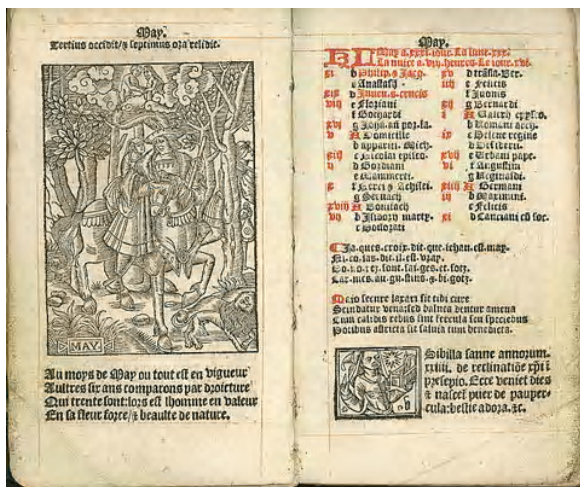 May.
Tertius occidit/ꝫ septimus ora relidit.
MAY
Au moys de May ou tout est en vigueur
Aultres six ans comparons par droicture
Qui trente sont:lors est lhomme en valeur
En sa fleur force/ꝫ beaulte de nature.
May.
KL May a.xxxi.iour. La lune.xxx.
La nuict a.viij.heures. Le iour.xvi.
xi b Philip.ꝫ Jacq.
c Anastasij
xix d Inuen.s.crucis
viij e Floriani
f Gothardi
xvi g Joha.an por.la.
v A Domicille
b appariti. Mich.
xiij c Nicolai episco.
ij d Gordiani
e Mammerti
x f Nerei ꝫ Achilei
g Seruacij
xviij A Bonifacij
vij b Isidory marty.
c Honorati
xv d trāsla.Ber.
iiij e Felicis
f Juonis
xij g Bernardi
i A
b Romani
ix c Helene regine
d Desiderii
xvij e Urbani pape.
vi f Augustini
g
xiiij A Germani
iij b Maximini
c Felicis
xi d Canciani cū soc.
Ja.ques.croix.dit.que.iehan.est.may.
Ni.co.las.dit.il.est.vray.
sont.sai.ges.et.sotz.
Car.mes.au.gu.stins.ꝫ.bi.gotz.
Maio secure laxari sit tibi cure
Scindatur vena:sed balnea dentur amena
Cum calidis rebus sint fercula seu speciebus
Potibus astricta sit saluia cum benedicta.
Sibilla annorum.
xxiiii. de reclinatiōe xp̄i ī
presepio. Ecce veniet dies
ꝫ nascet̄ puer de pauper-
cula:bestie adora.ꝫc.